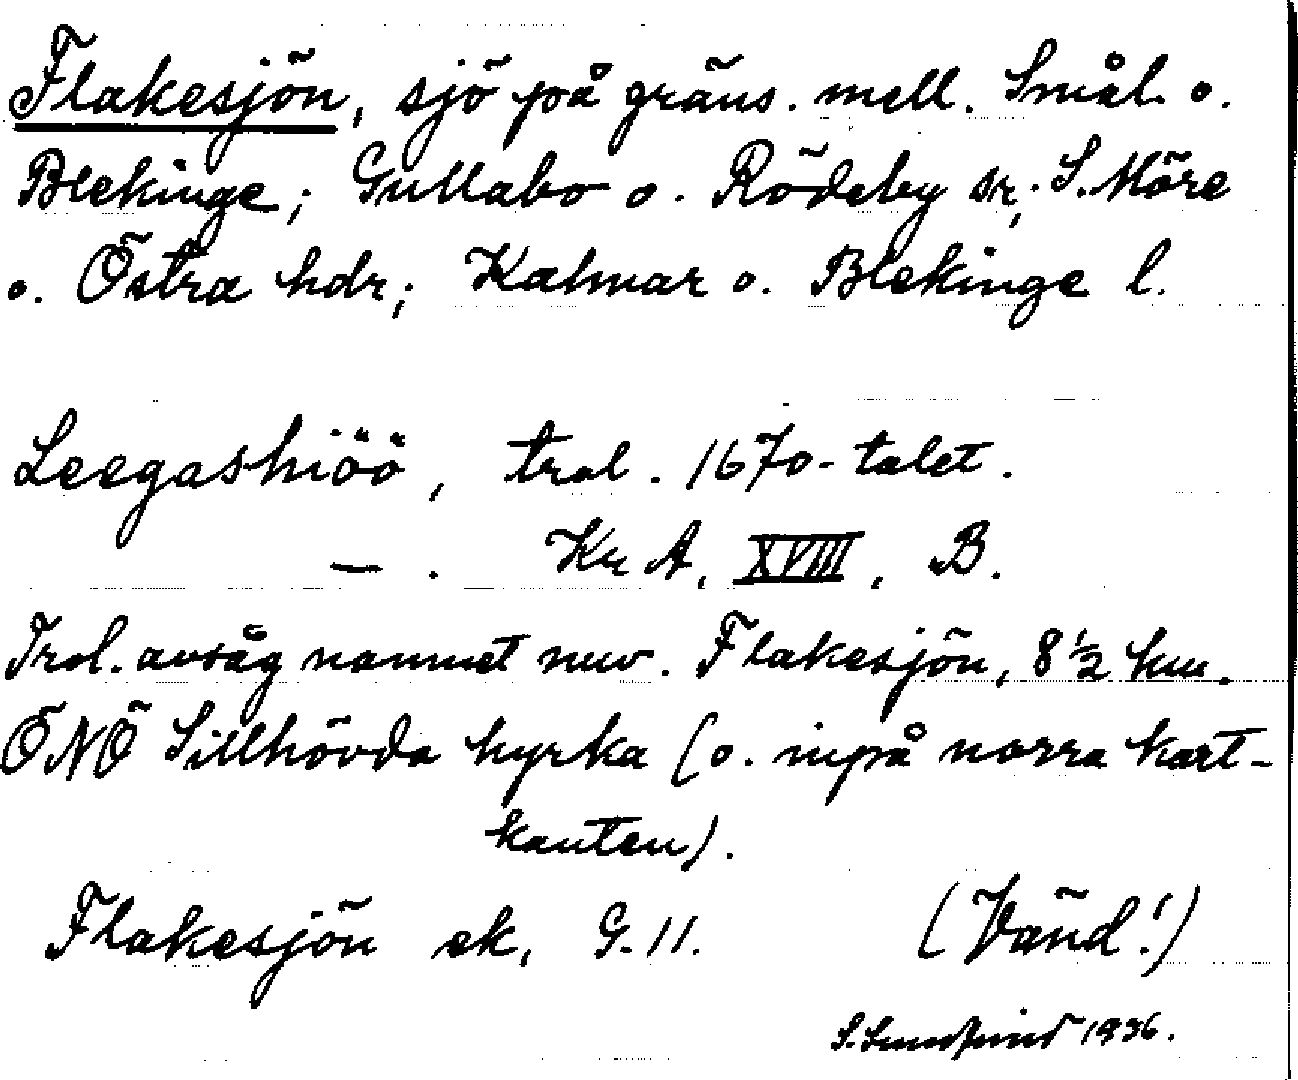 Flakesjön, sjö på gräns. mell. Smål. o.
Blekinge; Gullabo o. Rödeby sr; S. Möre
o. Östra hdr; Kalmar o. Blekinge l.
Leegashiöö, trol. 1670-talet.
— . Kr A, XVIII, B.
Trol. avsåg namnet nuv. Flakesjön, 8 ½ km.
ÖNÖ Sillhövda kyrka (o. inpå norra kart-
kanten).
Flakesjön ek, G. 11. (Vänd!)
1936.